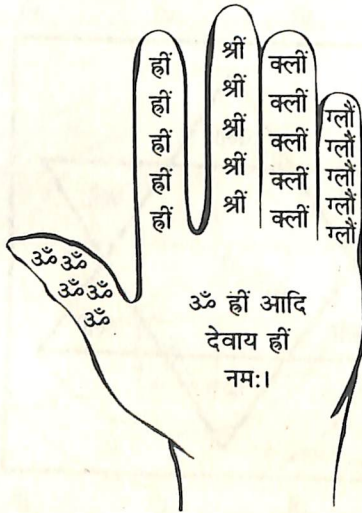 ह्रीं
ह्रीं
ह्रीं
ह्रीं
ह्रीं
श्रीं
श्रीं
श्रीं
श्रीं
श्रीं
क्लीं
क्लीं
क्लीं
क्लीं
क्लीं
ग्लौं
ग्लौं
ग्लौं
ग्लौं
ग्लौं
ॐ ॐ
ॐ ॐ
ॐ
ॐ ह्रीं आदि
देवाय ह्रीं
नमः।